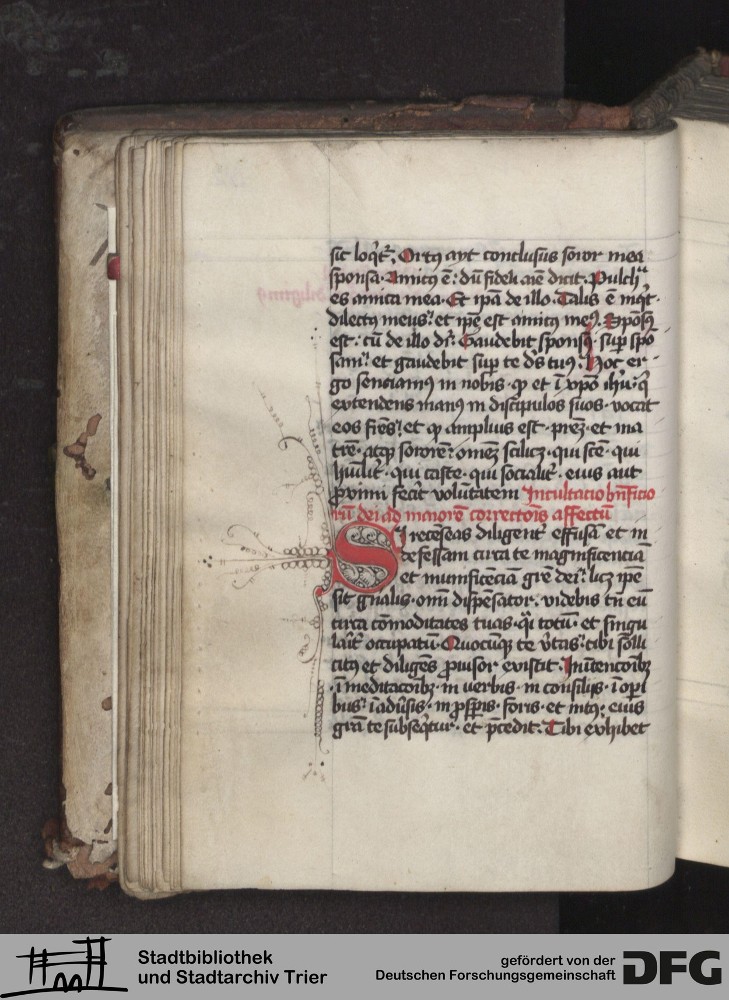 sic loq̄t᷑. Ortꝯ ayt conclusus soror mea
sponsa. Amicꝯ ē: dū fideli aīe dicit. Pulchᵃ
es amica mea. Et ip̄a de illo. Talis ē inq̄t.
dilectꝯ meus: et ip̄e est amicꝯ meꝯ. Spōsꝯ
est: cū de illo dr̄. Gaudebit sponsꝯ sup̄ spō
sam: et gaudebit sup̄ te d̄s tuꝯ. Hoc er-
go senciamꝯ in nobis. qꝫ et ī xp̄o ih̄u: q̄
extendens manꝯ in discipulos suos. vocat
eos fr̄es: et qꝫ amplius est. pr̄em et ma
trē. atqꝫ sororē: om̄em scilicꝫ. qui sc̄e. qui
hūilit᷑. qui caste. qui socialit᷑. eius aut
ꝓximi fecīt volūtatem Incultacio bn̄ficio
rū dei ad maiorē correctoīs affectū
Si receseas diligent᷑ effusā et in
defessam circa te magnificenciā
et munificēciā gr̄e dei: licꝫ ip̄e
sit gn̄alis. om̄ī dispēsator. videbis tn̄ eū
circa cōmoditates tuas. q̄i totū. et singu
lāit᷑ occupatū. Quocūqꝫ te v̄tas. tibi solli
citꝯ et diligēs ꝓuisor existit. In ītencoībꝫ
.ī meditacoībꝫ. in verbis. in consilijs. ī opi
bus: ī adūsis. in ꝓsꝑis. foris. et intꝯ. eius
gr̄a te subseq̄tur. et p̄cedit. Tibi exhibet
Stadtbibliothek
und Stadtarchiv Trier
gefördert von der
Deutschen Forschungsgemeinschaft
DFG